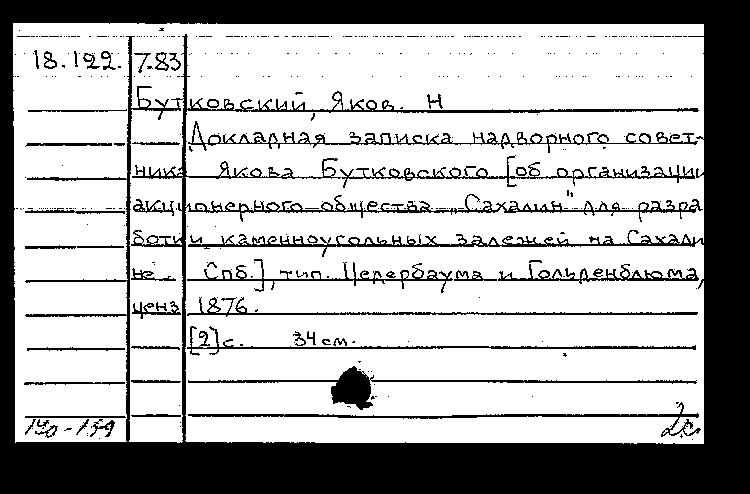 18.122. 7.83
Бутковский, Яков. Н
Докладная записка надворного совет-
ника Якова Бутковского [об организации
акционерного общества „Сахалин" для разра
ботки каменноугольных залежей на Сахали
не. Спб.], тип. Цедербаума и Гольденблюма,
ценз. 1876.
[2]с. 34 см.